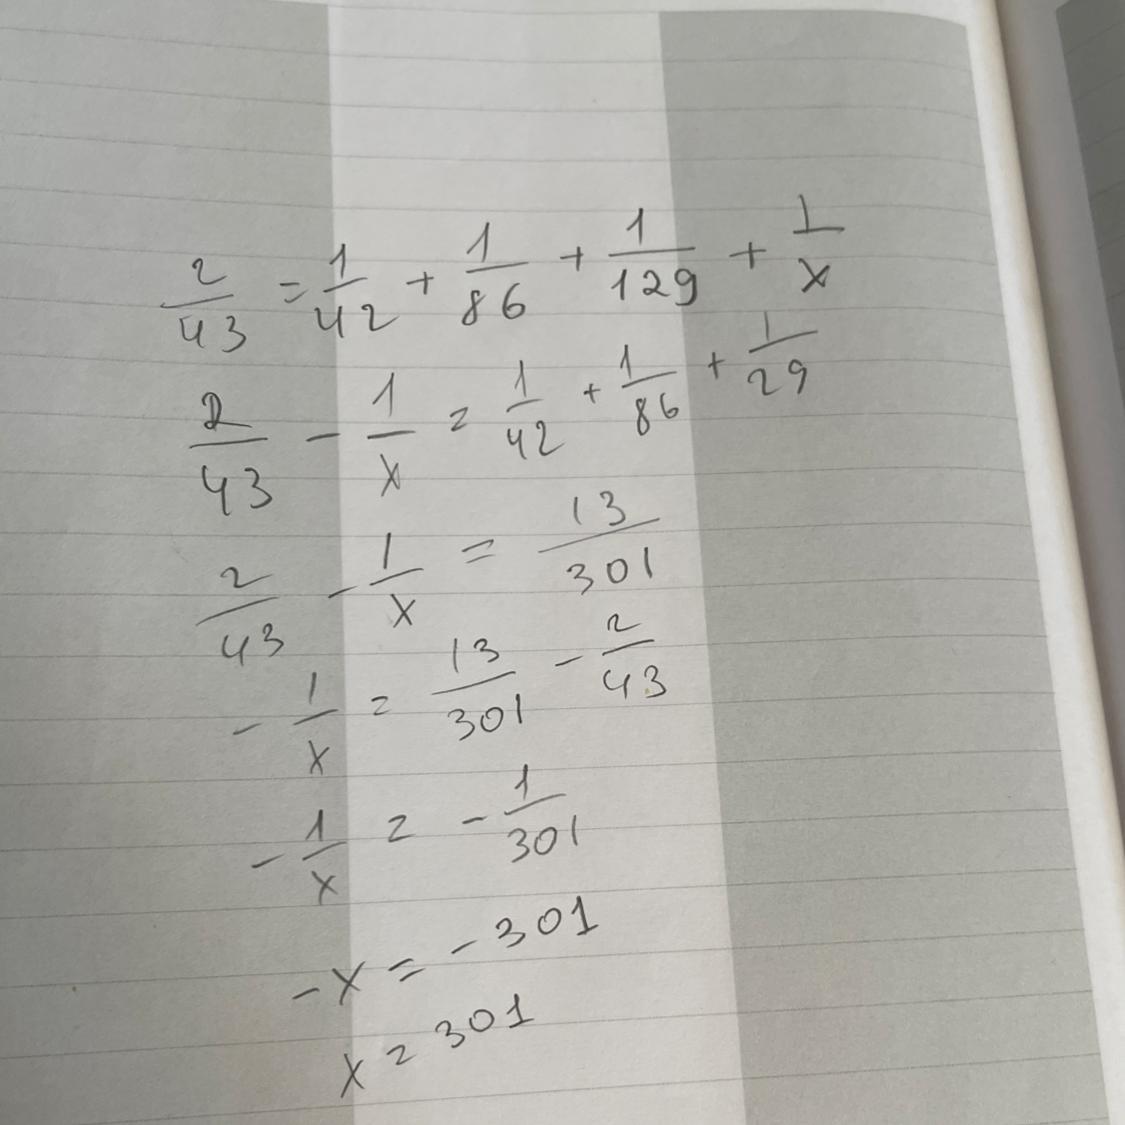 2/43 = 1/42 + 1/86 + 1/129 + 1/x
2/43 - 1/x = 1/42 + 1/86 + 1/29
2/43 - 1/x = 13/301
- 1/x = 13/301 - 2/43
- 1/x = - 1/301
- x = - 301
x = 301